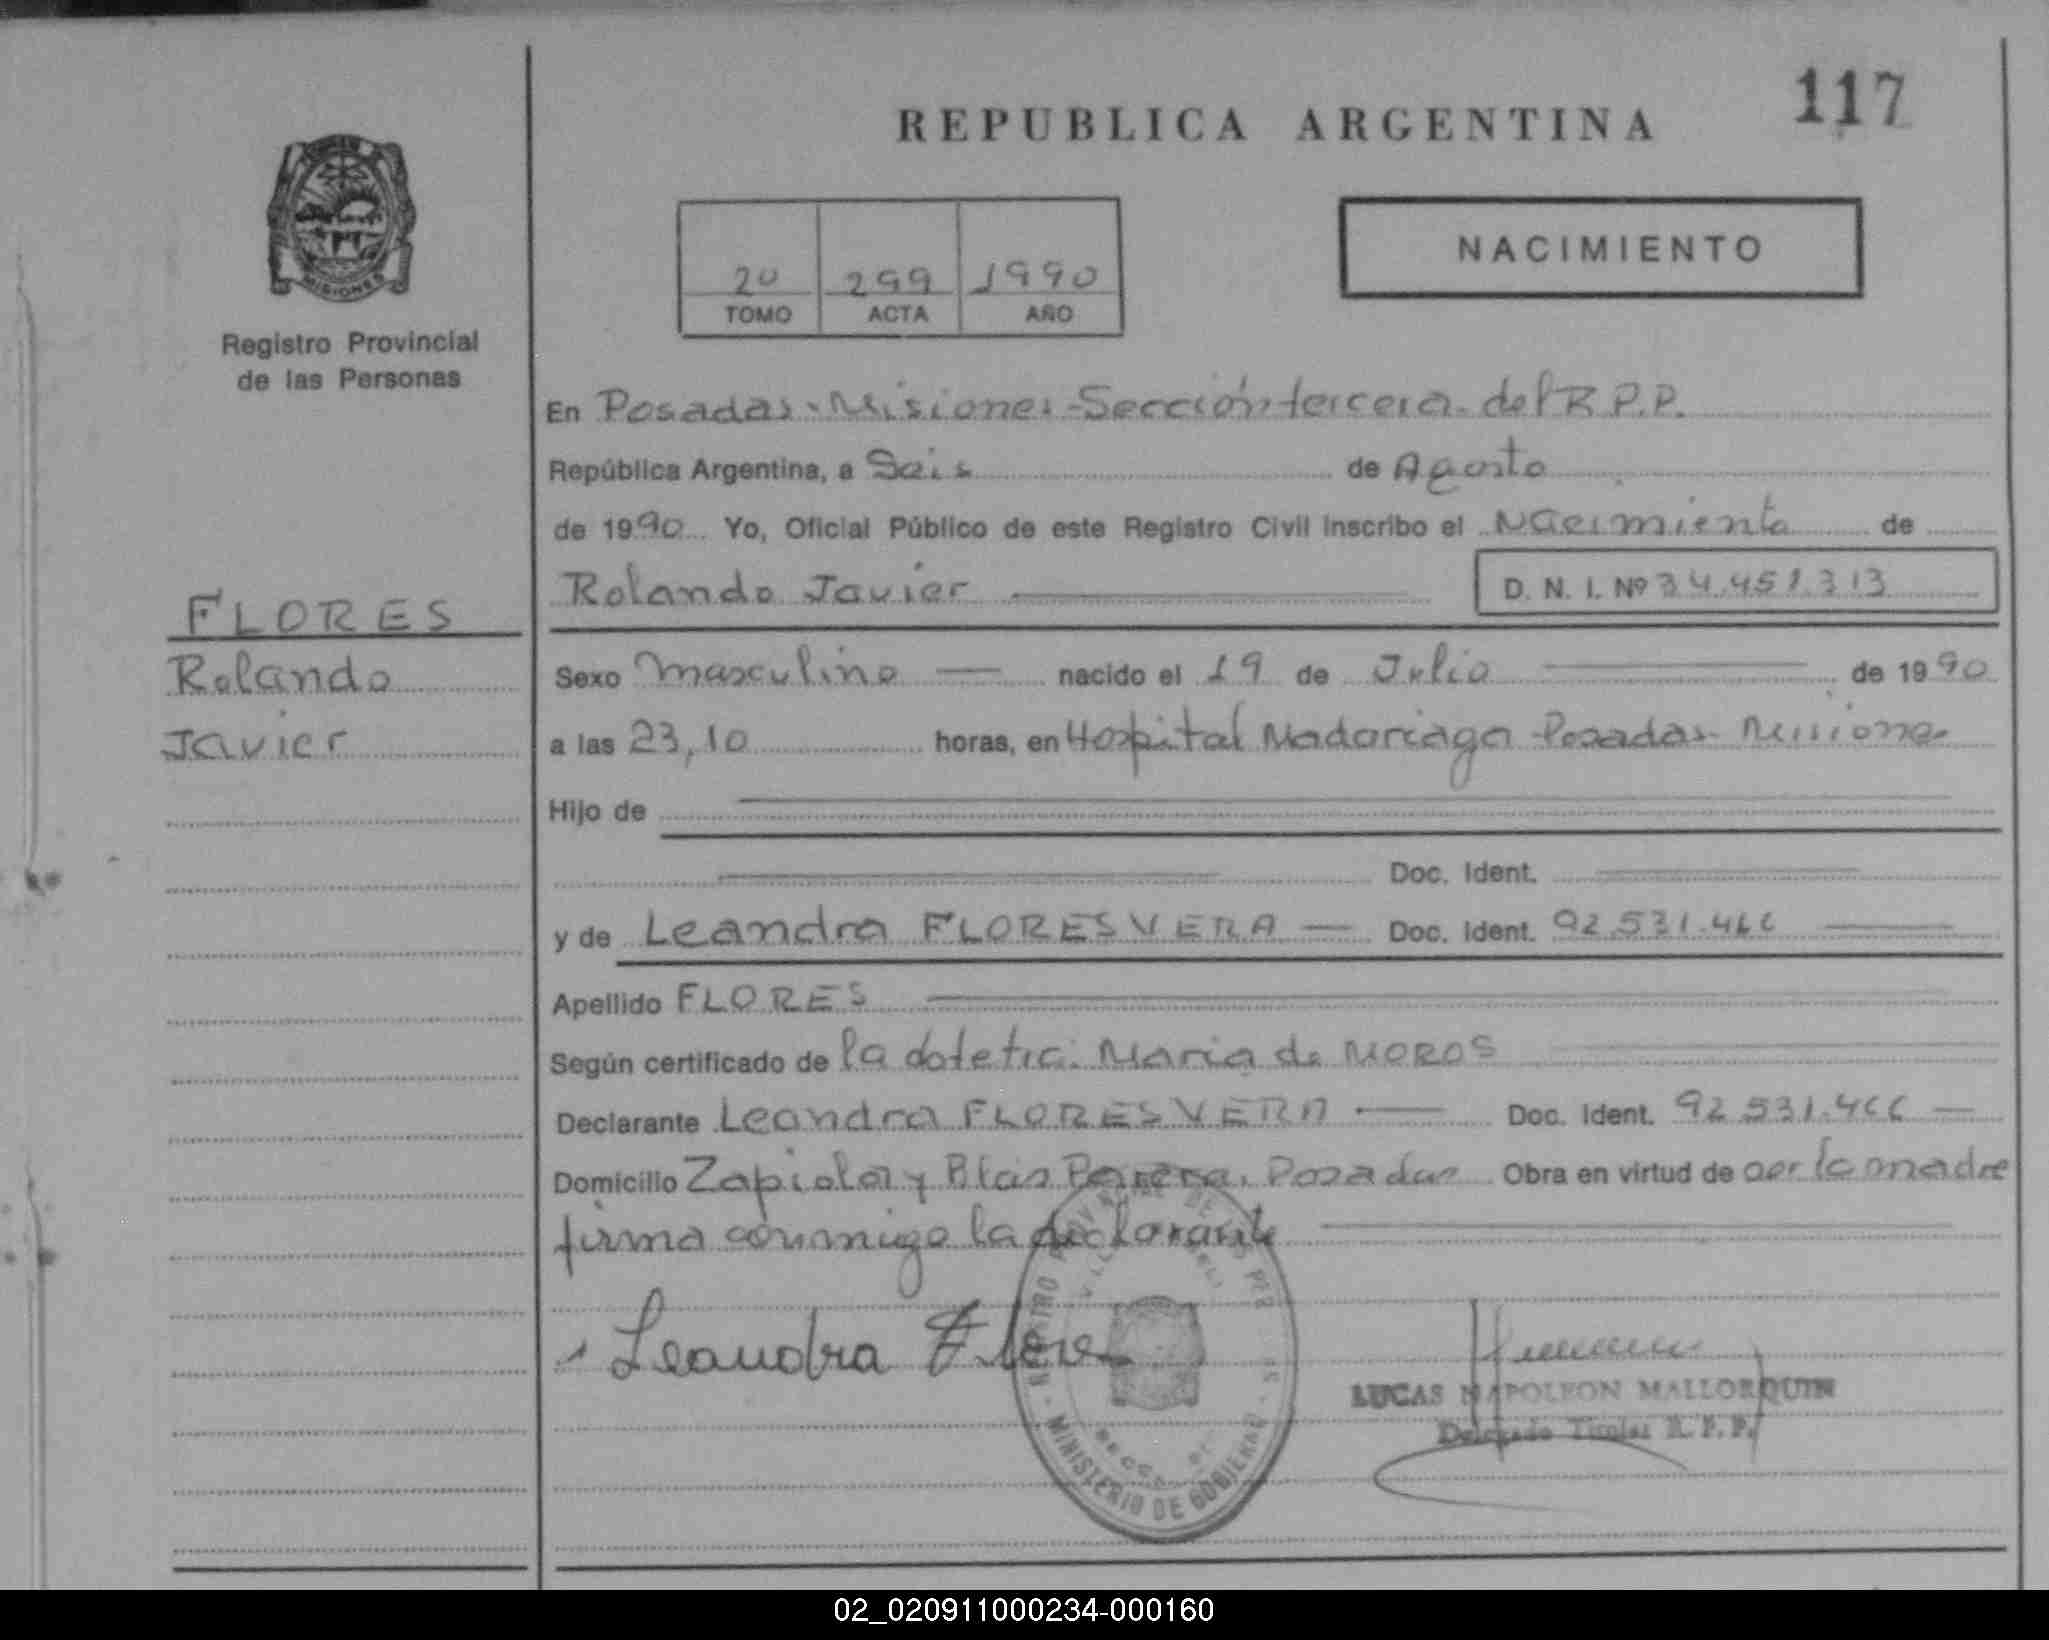 117
REPUBLICA ARGENTINA
NACIMIENTO
20 299 1990
TOMO ACTA AÑO
MISIONES
Registro Provincial
de las Personas
En Posadas - Misiones - Sección tercera del R.P.P.
República Argentina, a Seis de Agosto
de 1990 Yo, Oficial Público de este Registro Civil inscribo el Nacimiento de
Rolando Javier D. N. I. Nº 34.451.313
FLORES
Rolando
Javier
Sexo Masculino nacido el 19 de Julio de 1990
a las 23,10 horas, en Hospital Madariaga Posadas - Misiones
Hijo de
Doc. Ident.
y de Leandra FLORES VERA Doc. Ident. 92.531.466
Apellido FLORES
Según certificado de la María de MOROS
Declarante Leandra FLORES VERA Doc. Ident. 92.531.466
Domicilio Zapiola y Blas Parera, Posadas Obra en virtud de ser la madre
firma conmigo la declarante
Leandra Flores
LUCAS NAPOLEON MALLORQUIN
Delegado Titular R.P.P.
MINISTERIO DE GOBIERNO
02_020911000234-000160